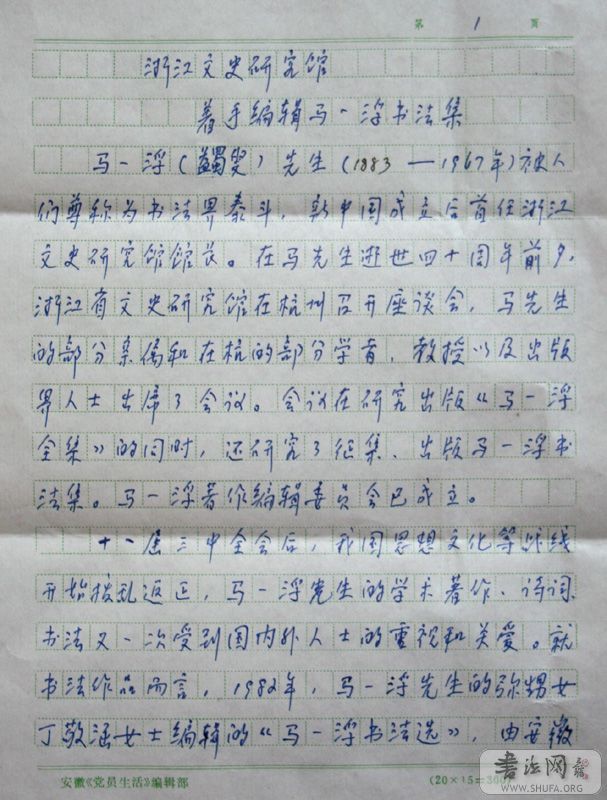 第 1 页
浙江文史研究馆
着手编辑马一浮书法集
马一浮（蠲叟）先生（1883—1967年）被人
们尊称为书法界泰斗，新中国成立后首任浙江
文史研究馆馆长。在马先生逝世四十周年前夕，
浙江省文史研究馆在杭州召开座谈会，马先生
的部分亲属和在杭的部分学者、教授以及出版
界人士出席了会议。会议在研究出版《马一浮
全集》的同时，还研究了征集、出版马一浮书
法集。马一浮著作编辑委员会已成立。
十一届三中全会后，我国思想文化等战线
开始拨乱返正，马一浮先生的学术著作、诗词、
书法又一次受到国内外人士的重视和关爱。就
书法作品而言，1982年，马一浮先生的弥甥女
丁敬涵女士编辑的《马一浮书法选》，由安徽
安徽《党员生活》编辑部
(20×15=300)
书法网
WWW.SHUFA.ORG